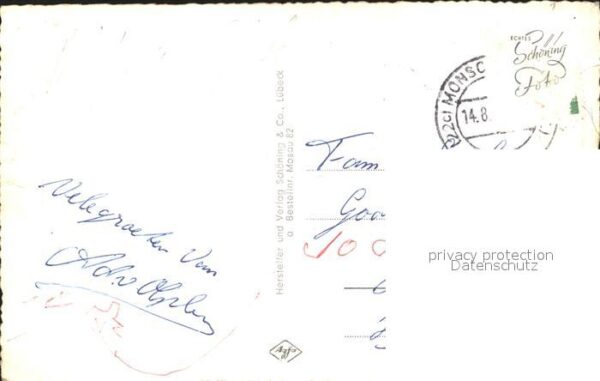 Vele groeten van
Hersteller und Verlag Schöning & Co., Lübeck
a Bestellnr. Mosau 82
Agfa
ECHTES
Schöning
Foto
(22c) MONSC
14.8.
Fam
Goo
privacy protection
Datenschutz